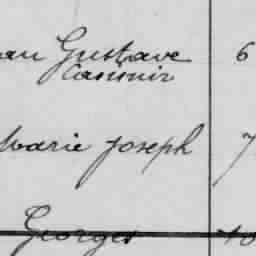 au Gustave 6
Casimir
Marie Joseph 7
Georges 10